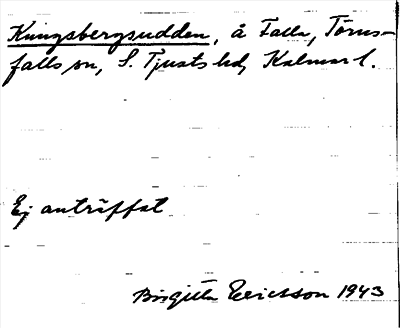 Kungsbergsudden, å Falla, Törns-
falls sn, S. Tjusts hd, Kalmar l.
Ej anträffat
Birgitta Ericsson 1943